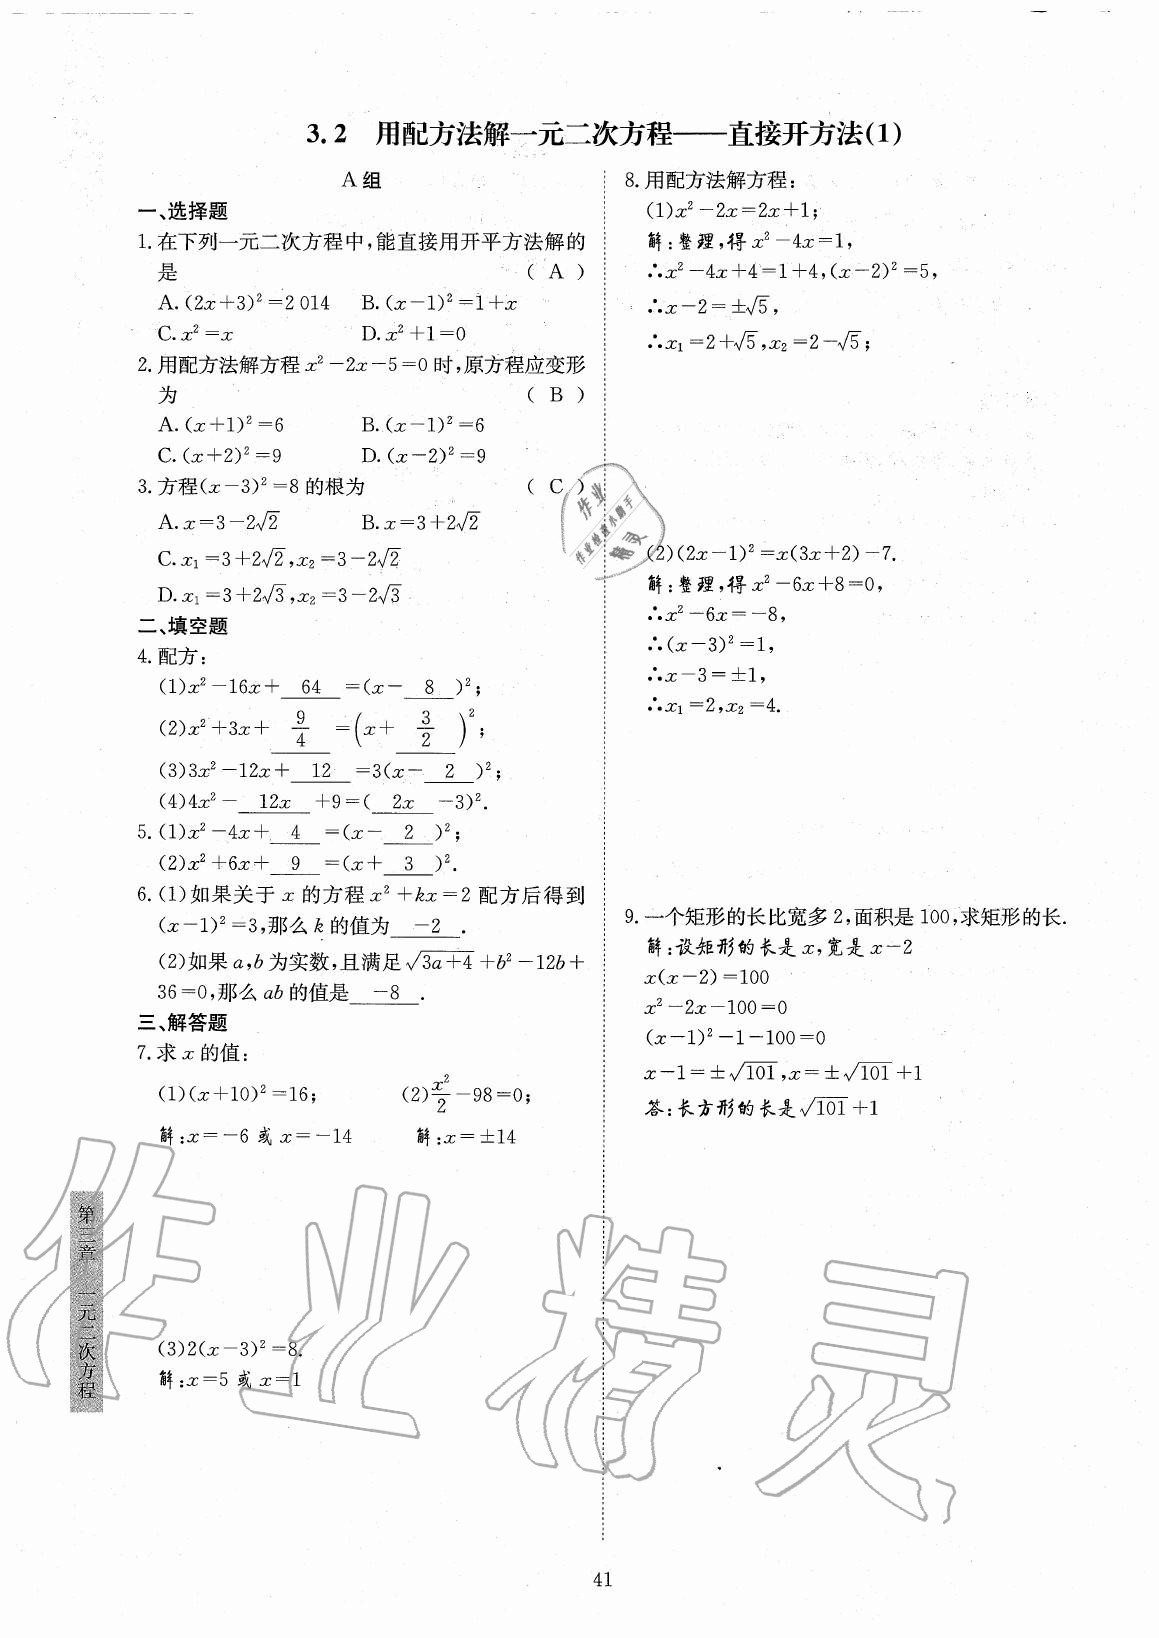 3.2 用配方法解一元二次方程——直接开方法(1)
A组
一、选择题
1.在下列一元二次方程中,能直接用开平方法解的
是 ( A )
A.(2x+3)²=2 014 B.(x-1)²=1+x
C.x²=x D.x²+1=0
2.用配方法解方程x²-2x-5=0时,原方程应变形
为 ( B )
A.(x+1)²=6 B.(x-1)²=6
C.(x+2)²=9 D.(x-2)²=9
3.方程(x-3)²=8的根为 ( C )
A.x=3-2√2 B.x=3+2√2
C.x₁=3+2√2,x₂=3-2√2
D.x₁=3+2√3,x₂=3-2√3
二、填空题
4.配方:
(1)x²-16x+ 64 =(x- 8 )²;
(2)x²+3x+ 9/4 =(x+ 3/2 )²;
(3)3x²-12x+ 12 =3(x- 2 )²;
(4)4x²- 12x +9=( 2x -3)².
5.(1)x²-4x+ 4 =(x- 2 )²;
(2)x²+6x+ 9 =(x+ 3 )².
6.(1)如果关于x的方程x²+kx=2配方后得到
(x-1)²=3,那么k的值为 -2 .
(2)如果a,b为实数,且满足√(3a+4)+b²-12b+
36=0,那么ab的值是 -8 .
三、解答题
7.求x的值:
(1)(x+10)²=16; (2)x²/2-98=0;
解:x=-6或x=-14 解:x=±14
(3)2(x-3)²=8.
解:x=5或x=1
8.用配方法解方程:
(1)x²-2x=2x+1;
解:整理,得x²-4x=1,
∴x²-4x+4=1+4,(x-2)²=5,
∴x-2=±√5,
∴x₁=2+√5,x₂=2-√5;
(2)(2x-1)²=x(3x+2)-7.
解:整理,得x²-6x+8=0,
∴x²-6x=-8,
∴(x-3)²=1,
∴x-3=±1,
∴x₁=2,x₂=4.
9.一个矩形的长比宽多2,面积是100,求矩形的长.
解:设矩形的长是x,宽是x-2
x(x-2)=100
x²-2x-100=0
(x-1)²-1-100=0
x-1=±√101,x=±√101+1
答:长方形的长是√101+1
第三章 一元二次方程
41
作业
作业检查小助手
精灵
作业精灵